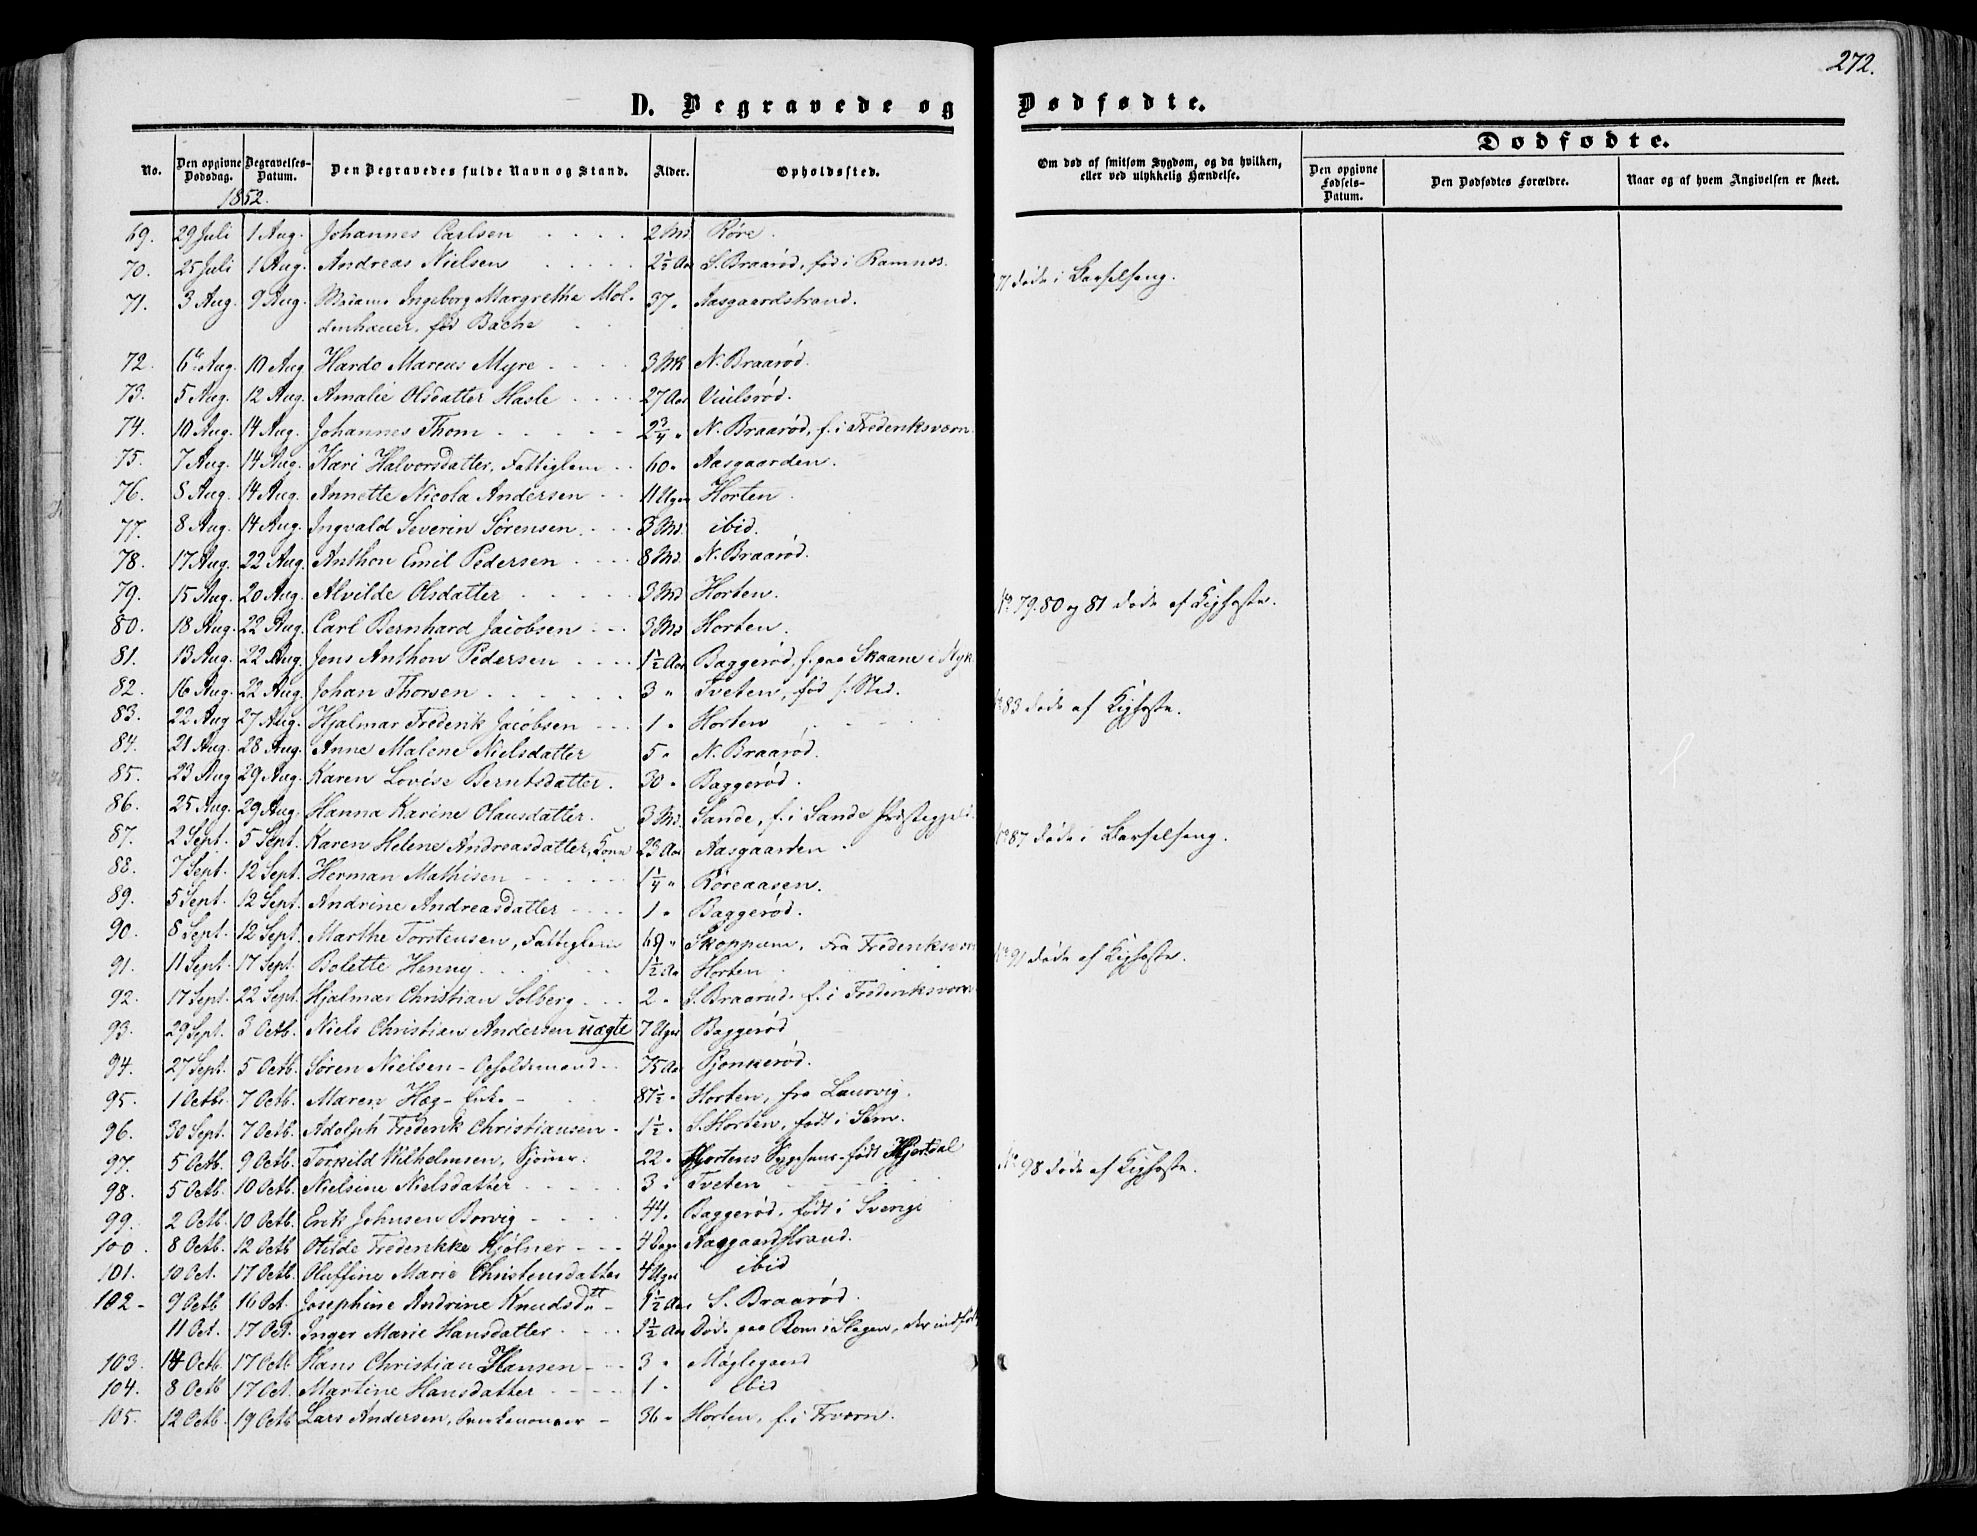 272.
D. Begravede og Dødfødte.
No. Den opgivne Dødsdag. Begravelses-Datum. Den Begravedes fulde Navn og Stand. Alder. Opholdssted.
Om død af smitsom Sygdom, og da hvilken, eller ved ulykkelig Hændelse.
Dødfødte.
Den opgivne Fødsels-Datum. Den Dødfødtes Forældre. Naar og af hvem Angivelsen er skeet.
1852.
69. 29 Juli 1 Aug. Johannes Carlsen 2 Md Røre.
70. 25 Juli 1 Aug. Andreas Nielsen 2½ Aar S. Braarød, fød i Ramnæs.
71. 3 Aug. 9 Aug. Madame Ingeborg Margrethe Mol- 37 " Aasgaardstrand.
denhauer, fød Bache
71 døde i Barselseng.
72. 6 Aug. 10 Aug. Hardo Marcus Myre 3 N. Braarød.
73. 5 Aug. 12 Aug. Amalie Olsdatter Hasle 27 Aar
74. 10 Aug. 14 Aug. Johannes Thom 2¾ " N. Braarød, f. i Frederiksværn
75. 7 Aug. 14 Aug. Kari Halvorsdatter, Fattiglem 60 " Aasgaarden.
76. 8 Aug. 14 Aug. Annette Nicola Andersen 11 Uger Horten.
77. 8 Aug. 14 Aug. Ingvald Severin Sørensen 3 Md. ibid.
78. 17 Aug. 22 Aug. Anthon Emil Pedersen 8 Md. N. Braarød.
79. 15 Aug. 20 Aug. Alvilde Olsdatter 3 Md Horten.
No 79. 80 og 81 døde af Kighoste.
80. 18 Aug. 22 Aug. Carl Bernhard Jacobsen 3 Md Horten.
81. 13 Aug. 22 Aug. Jens Anthon Pedersen 1½ Aar Baggerød, f. paa Skaane i
82. 16 Aug. 22 Aug. Johan Thorsen 3 " Tveten, fød s. Sted.
83. 22 Aug 27 Aug. Hjalmar Frederik Jacobsen 1 " Horten
No 83 døde af Kighoste.
84. 21 Aug. 28 Aug. Anne Malene Nielsdatter 5 " N. Braarød.
85. 23 Aug 29 Aug. Karen Lovise Berntsdatter. 30 " Baggerød.
86. 25 Aug. 29 Aug. Hanna Karine Olausdatter. 3 Md. Sande, f. i Sande Præstegjeld
87. 2 Sept. 5 Sept. Karen Helene Andreasdatter, Kone 23 Aar Aasgaarden.
No 87 døde i Barselseng.
88. 7 Sept. 12 Sept. Herman Mathisen 1¼ " Røreaasen.
89. 5 Sept. 12 Sept. Andrine Andreasdatter 1 " Baggerød.
90. 8 Sept. 12 Sept. Marthe Torstensen, Fattiglem 69 " Skoppum, fra Frederiksværn
91. 11 Sept. 17 Sept. Bolette Henny 1½ Aar Horten
No 91 døde af Kighoste.
92. 17 Sept. 22 Sept. Hjalmar Christian Solberg 2 " S. Braarud. f. i Frederiksværn
93. 29 Sept. 3 Octb. Niels Christian Andersen uægte 7 Uger Baggerød
94. 27 Sept. 5 Octb. Søren Nielsen - Opholdsmand 75 Aar Pjonkerød.
95. 1 Octbr. 7 Octb. Maren Høg - Enke - 87½ " Horten, fra Laurvig.
96. 30 Sept. 7 Octb. Adolph Frederik Christiansen 1½ " S. Horten, født i Sem.
97. 5 Octb. 9 Octb. Torkild Wilhelmsen, 22 " Hortens Sygehuus - født Hjertdal
98. 5 Octb. 10 Octb. Nielsine Nielsdatter 3 " Tveten
No 98 døde af Kighoste.
99. 2 Octb. 10 Octb. Erik Johnsen Borvig 44 " Baggerød, født i Sverige
100. 8 Octb. 12 Octb Otilde Frederikke Kjølner 4 Dage Aasgaardstrand.
101. 10 Oct. 17 Octb. Oluffine Marie Christensdatter 4 Uger ibid
102 - 9 Octb 16 Oct. Josephine Andrine Knudsdtt 1½ Aar S. Braarød.
11 Oct. 17 Oct. Inger Marie Hansdatter 1½ Aar Døde paa Rom i Slagen, der indført
103. 14 Octb 17 Octb Hans Christian Hansen 3 " Møglegaard
104. 8 Octb 17 Oct. Martine Hansdatter 1 " ibid
105. 12 Octb. 19 Octb Lars Andersen, 36 " Horten, f. i Frværn.